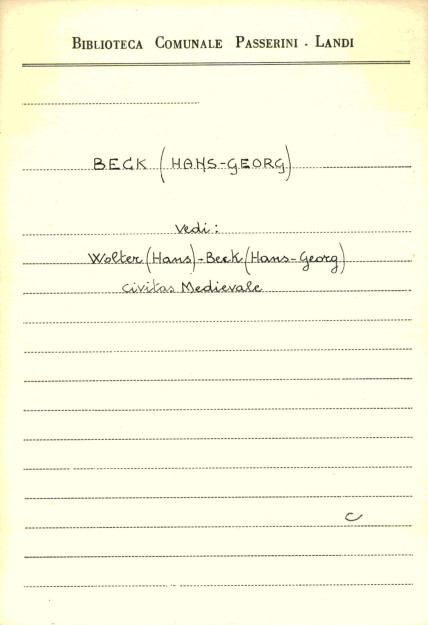 BIBLIOTECA COMUNALE PASSERINI - LANDI
BECK (HANS-GEORG)
Vedi:
Wolter (Hans)-Beck (Hans-Georg)
Civitas Medievale
C